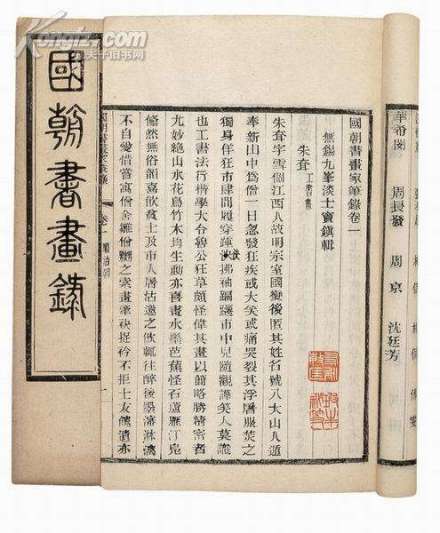 Kongfz.com
國朝書畫錄
國朝書畫家筆錄卷一
無錫九峯淡士竇鎮輯
朱耷 工書畫
朱耷字雪個江西人故明宗室國變後匿其姓名號八大山人遁
奉新山中為僧一日忽發狂疾或大笑或痛哭裂其浮屠服焚之
獨身佯狂市肆間履穿踵決拂袖蹁躚市中兒隨觀譁笑人莫識
也工書法行楷學大令魯公狂草頗怪偉其畫以簡略勝精密者
尤妙絕山水花鳥竹木均生動亦喜畫水墨芭蕉怪石蘆雁汀鳧
翛然無俗韻喜飲貧士及市人屠沽邀之飲輒往醉後墨瀋淋漓
不自愛惜嘗寓僧舍雛僧嬲之索畫牽袂捉衿不拒士友饋遺亦
華希閔
周長發
周京
沈廷芳